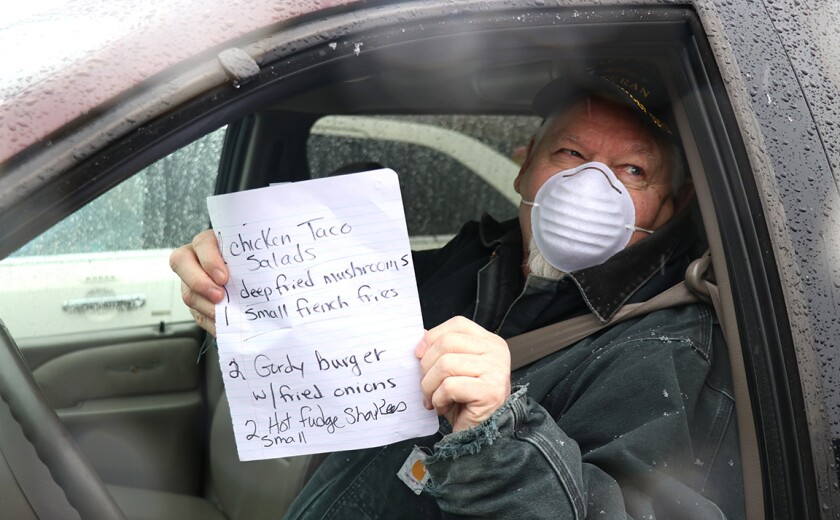 VETERAN
1 chicken Taco
Salads
1 deep fried mushrooms
1 small french fries
2 Gurdy burger
w/fried onions
2 Hot fudge Shakes
small